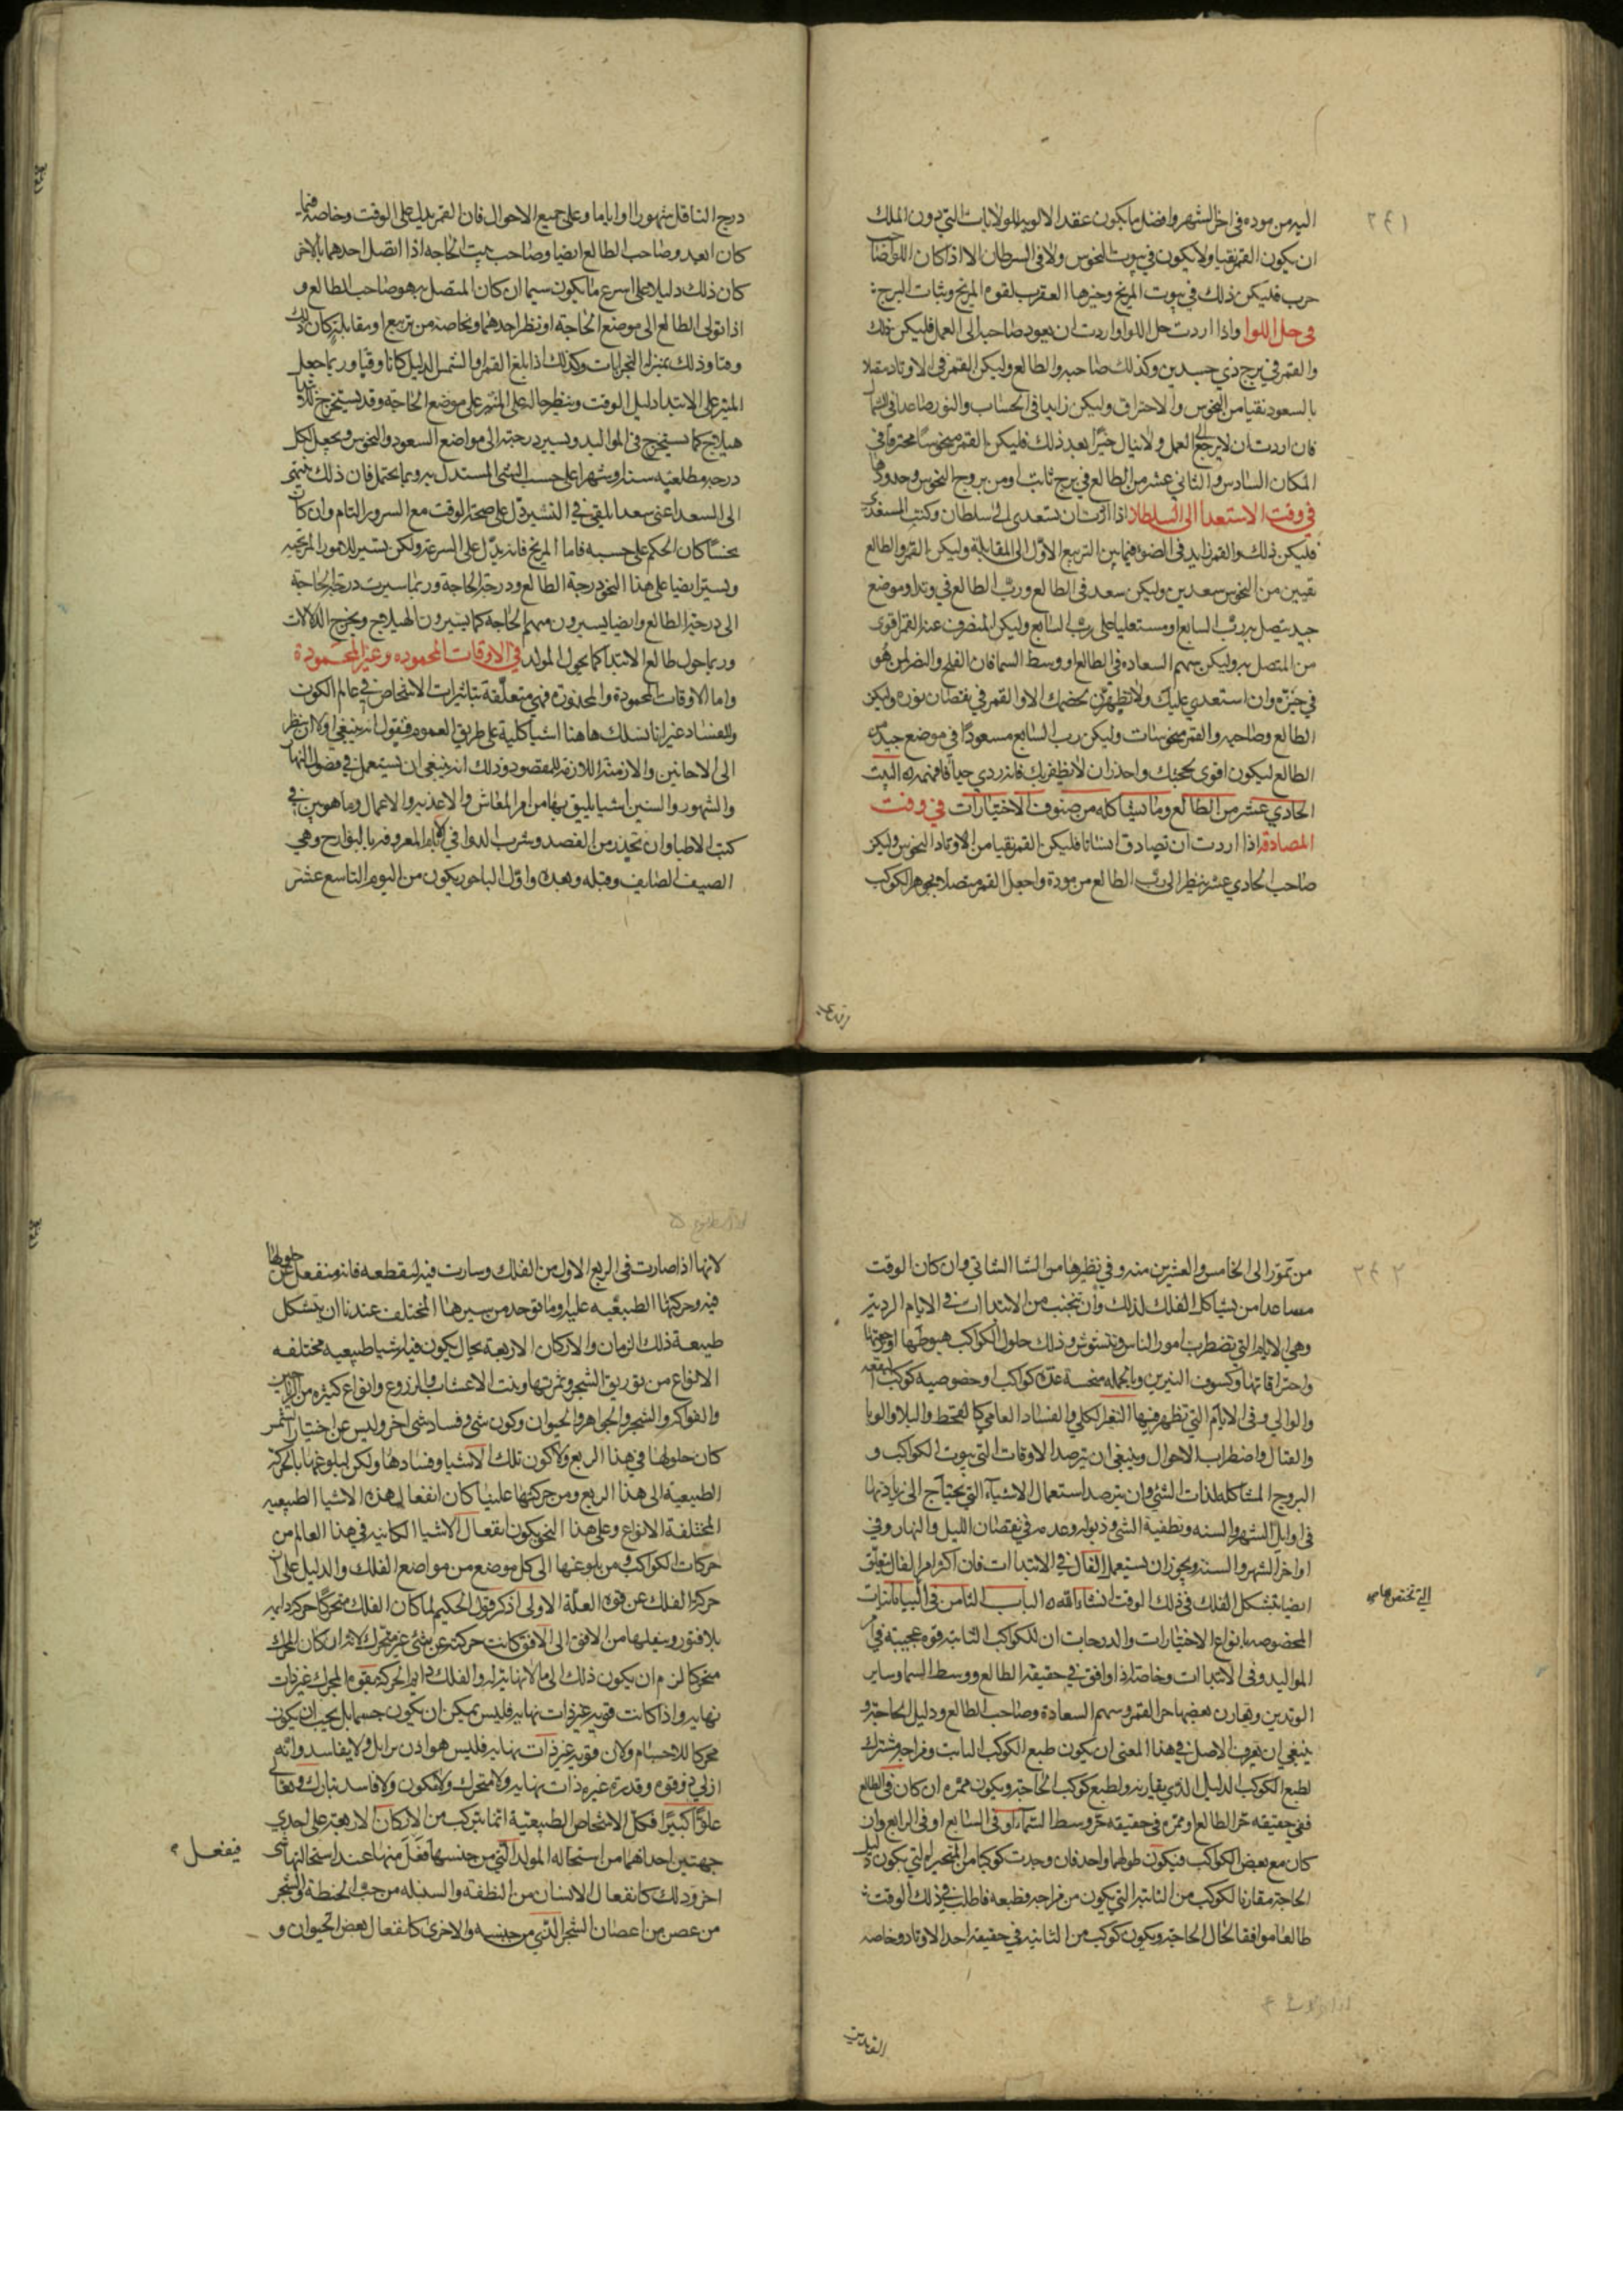 ٢٤١
اليه من موده في اخر الشهر وافضل ما يكون عقد الالويه للولايات التي دون الملك
ان يكون القمر نقيا ولا يكون في بيوت النحوس ولا في السرطان الا اذا كان اللوا لصاحب
حرب فليكن ذلك في بيوت المريخ وخيرها العقرب لقوه المريخ وثبات البرج :
في حل اللوا واذا اردت حل اللوا واردت ان يعود صاحبه الى العمل فليكن ذلك
والقمر في برج ذي جسدين وكذلك صاحبه والطالع وليكن القمر في الاوتاد مقبلا
بالسعود نقيا من النحوس والاحتراق وليكن زايدا في الحساب والنور صاعدا في الشمال
فان اردت ان لا يرجع الى العمل ولا ينال خيرا بعد ذلك فليكن القمر منحوسا محترقا في
المكان السادس والثاني عشر من الطالع في برج ثابت او من بروج النحوس وحدودها
في وقت الاستعدا الى السلطان اذا اردت ان تستعدي الى سلطان وكنت المستعدي
فليكن ذلك والقمر زايد في الضو فيما بين التربيع الاول الى المقابلة وليكن القمر والطالع
نقيين من النحوس سعدين وليكن سعد في الطالع ورب الطالع في وتد او موضع
جيد يتصل برب السابع او مستعليا على رب السابع وليكن المنصرف عنه القمر اقوى
من المتصل به وليكن سهم السعاده في الطالع او وسط السما فان الفلج والنصر لمن هو
في حيزه وان استعدي عليك ولا تظهرن خصمك الا والقمر في نقصان نوره وليكن
الطالع وصاحبه والقمر منحوسات وليكن رب السابع مسعودا في موضع جيد من
الطالع ليكون اقوى لحجتك واحذر ان لا يظفر بك فانه ردي جدا فافهمه ۞ البيت
الحادي عشر من الطالع وما يشاكله من صنوف الاختيارات في وقت
المصادقة اذا اردت ان تصادق انسانا فليكن القمر نقيا من الاوتاد النحوس وليكن
صاحب الحادي عشر ينظر الى رب الطالع من مودة واجعل القمر متصلا بجوهر الكوكب
درج التناقل شهورا او اياما وعلى جميع الاحوال فان القمر يدل على الوقت وخاصة فيما
كان ابعد وصاحب الطالع ايضا وصاحب بيت الحاجه اذا اتصل احدهما بالاخر
كان ذلك دليلا على اسرع ما يكون سيما ان كان المتصل به هو صاحب الطالع و
اذا تولى الطالع الى موضع الحاجة او نظر احدهما وبخاصة من تربيع او مقابلة كان ذلك
وقتا وذلك بمنزلة البحرانات وكذلك اذا بلغ القمر او الشمس الدليل كانا وقتا وربما جعل
المبتز على الابتدا دليل الوقت وينظر حاله على المبتز على موضع الحاجة وقد يستخرج للابتدا
هيلاج كما يستخرج في المواليد ويسير درجته الى مواضع السعود والنحوس ويجعل لكل
درجه مطلعيه سنة او شهرا على حسب الشي المستدل به وما يحتمل فان ذلك ينتهي
الى السعد اعني سعدا يلقي في التسير دل على صحة الوقت مع السرور التام وان كان
نحسا كان الحكم على حسبه فاما المريخ فانه يدل على السرعة ولكن بتسير للامور المريخيه
وتسير ايضا على هذا النحو درجة الطالع ودرجة الحاجة وربما سيرت درجة الحاجة
الى درجة الطالع وايضا يسيرون سهم الحاجه كما يسيرون الهيلاج ويخرج الدلالات
وربما حول طالع الابتدا كما يحول المولد في الاوقات المحموده وغير المحمودة
واما الاوقات المحمودة والمحذوره فهي متعلقة بتاثيرات الاشخاص في عالم الكون
والفساد غير انا نسلك هاهنا اشيا كلية على طريق العموم فنقول انه ينبغي اولا ان ينظر
الى الاحايين والازمنة اللازمة للمقصود وذلك انه ينبغي ان يستعمل في فصول النهار
والشهور والسنين اشيا يليق بها من امر المعاش والاغذيه والاعمال وما هو مبين في
كتب الاطبا وان تحذر من الفصد وشرب الدوا في الايام المعروفه بالبوارح وهي
الصيف الصايف وقبله وبعده واول الباحور يكون من اليوم التاسع عشر
٢٤٢
من تموز الى الخامس والعشرين منه وفي نظيرها من الشتا الشاتي وان كان الوقت
مساعدا من يشاكل الفلك لذلك وان تجتنب من الابتداات في الايام الرديه
وهي الايام التي تضطرب امور الناس وتتشوش وذلك حلول الكواكب هبوطها او رجعتها
واحتراقاتها وكسوف النيرين وبالجمله منحسة عدة كواكب او خصوصيه كوكب البقعه
والوالي وفي الايام التي تظهر فيها التغير الكلي والفساد العامي كالقحط والبلا والوبا
والقتال واضطراب الاحوال وينبغي ان يترصد الاوقات التي بيوت الكواكب و
البروج المشاكله لذات الشي وان يترصد استعمال الاشياء التي يحتاج الى زيادتها
في اوايل الشهر والسنه وتطفية الشي وذبوله وعدمه في نقصان الليل والنهار وفي
اواخر الشهر والسنه ويجوز ان يستعمل الفال في الابتداات فان اكثر امر الفال يتعلق
ايضا بتشكل الفلك في ذلك الوقت انشاء الله ۞ الباب الثامن في البيابانيات
التي تختص
المخصوصه بانواع الاختيارات والدرجات ان للكواكب الثابته قوه عجيبة في
المواليد وفي الابتداات وخاصة اذا وافق في حقيقة الطالع ووسط السما وساير
الوتدين ويقارن بعضها جرم القمر وسهم السعادة وصاحب الطالع ودليل الحاجة و
ينبغي ان يعرف الاصل في هذا المعنى ان يكون طبع الكوكب الثابت ومزاجه مشترك
لطبع الكوكب الدليل الذي يقارنه ولطبع كوكب الحاجة ويكون ممره ان كان في الطالع
ففي حقيقه جزء الطالع او ممره في حقيقه جزء وسط السماء او في السابع او في الرابع وان
كان مع بعض الكواكب فيكون طولهما واحد فان وجدت كوكبا من المتحيره التي يكون دليل
الحاجة مقارنا لكوكب من الثابتة التي يكون من مزاجه وطبعه فاطلب في ذلك الوقت
طالعا موافقا لحال الحاجة ويكون كوكب من الثابته في حقيقة احد الاوتاد وخاصه
لانها اذا صارت في الربع الاول من الفلك وسارت فيه لتقطعه فانه منفعل عن حلولها
فيه وحركتها الطبيعيه عليه وما توجد من سيرها المختلف عندنا ان يتشكل
طبيعة ذلك الزمان والاركان الاربعة بحال يكون فيه اشيا طبيعيه مختلفه
الانواع من توريق الشجر وثمرتها ونبت الاعشاب والزروع وانواع كثيره من الرياحين
والفواكه والشجر والجواهر والحيوان وكون شي وفساد شي اخر وليس عن اختيار الشمس
كان حلولها في هذا الربع ولا كون تلك الاشيا وفسادها ولكن لبلوغها بالحركة
الطبيعية الى هذا الربع ومن حركتها علينا كان انفعال هذه الاشيا الطبيعيه
المختلفة الانواع وعلى هذا النحو يكون انفعال الاشيا الكاينه في هذا العالم من
حركات الكواكب ومن بلوغها الى كل موضع من مواضع الفلك والدليل على ان
حركة الفلك عن قوه العلة الاولى اذكر قول الحكيم لما كان الفلك متحركا حركه دايمه
بلا فتور وينقلها من الافق الى الافق كانت حركته عن شي غير متحرك لانه ان كان المحرك
متحركا لزم ان يكون ذلك الى ما لا نهاية له والفلك دايم الحركة فقوة المحرك غير ذات
نهايه واذا كانت قوته غير ذات نهايه فليس يمكن ان يكون جسما بل يجب ان يكون
محركا للاجسام ولان قوته غير ذات نهايه فليس هو اذن بزايل ولا بفاسد وانه
ازلي ذو قوه وقدره غير ذات نهايه ولا متحرك ولا مكون ولا فاسد تبارك وتعالى
علوا كبيرا فكل الاشخاص الطبيعية انما تتركب من الاركان الاربعة على احدى
جهتين احداهما من استحاله المولد التي من جنسها فعل منها عند استحالتها شي
فيفعل ؟
اخر وذلك كانفعال الانسان من النطفة والسنبله من حب الحنطة والشجر
من غصن من اغصان الشجر التي من جنسه والاخرى كانفعال بعض الحيوان و